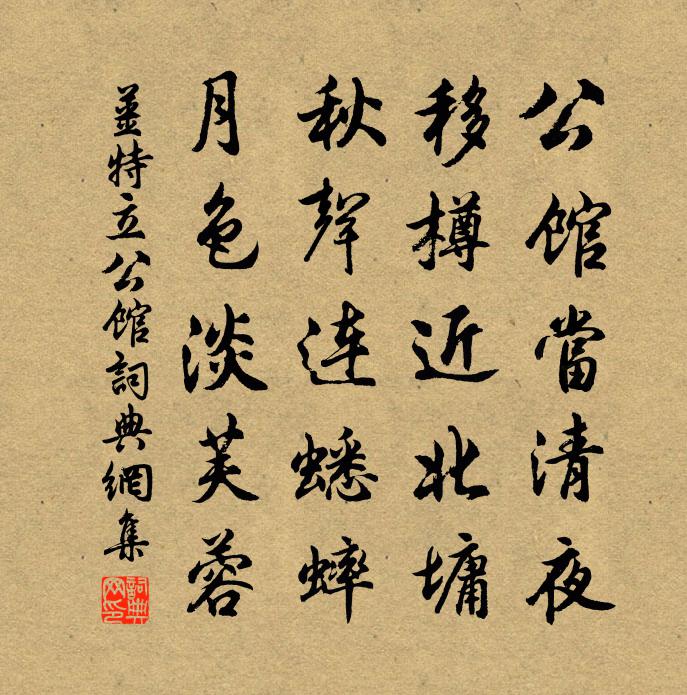 公館當清夜
移樽近北墉
秋聲連蟋蟀
月色淡芙蓉
薑特立公館詞典網集
詞典网印